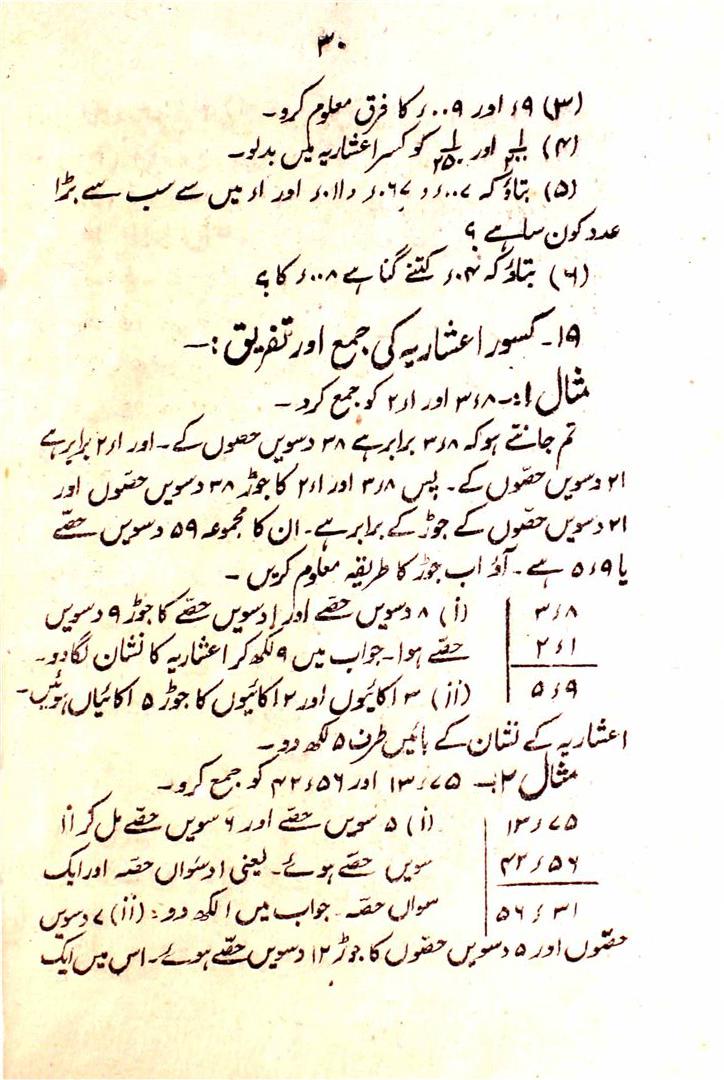 ۳۰
(۳) ۹ء اور ۰۰۹ء کا فرق معلوم کرو۔
(۴) ۱/۲۰۰ اور ۱/۲۵۰ کو کسر اعشاریہ میں بدلو۔
(۵) بتاؤ کہ ۰۰۷ء، ۰۶۷ء، ۰۱۱ء اور ۱ء میں سے سب سے بڑا
عدد کون سا ہے ؟
(۶) بتاؤ کہ ۰۴ء کتنے گنا ہے ۰۰۸ء کا ؟
۱۹۔ کسور اعشاریہ کی جمع اور تفریق :—
مثال ۱:۔ ۳ء۸ اور ۲ء۱ کو جمع کرو۔
تم جانتے ہو کہ ۳ء۸ برابر ہے ۳۸ دسویں حصوں کے۔ اور ۲ء۱ برابر ہے
۲۱ دسویں حصّوں کے۔ پس ۳ء۸ اور ۲ء۱ کا جوڑ ۳۸ دسویں حصّوں اور
۲۱ دسویں حصّوں کے جوڑ کے برابر ہے۔ ان کا مجموعہ ۵۹ دسویں حصّے
یا ۵ء۹ ہے۔ آؤ اب جوڑ کا طریقہ معلوم کریں۔
۳ء۸ (i) ۸ دسویں حصّے اور ۱ دسویں حصّے کا جوڑ ۹ دسویں
۲ء۱ حصّے ہوا۔ جواب میں ۹ لکھ کر اعشاریہ کا نشان لگا دو۔
۵ء۹ (ii) ۳ اکائیوں اور ۲ اکائیوں کا جوڑ ۵ اکائیاں ہوئیں۔
اعشاریہ کے نشان کے بائیں طرف ۵ لکھ دو۔
مثال ۲:۔ ۱۳ء۷۵ اور ۴۲ء۵۶ کو جمع کرو۔
۱۳ء۷۵ (i) ۵ سویں حصّے اور ۶ سویں حصّے مل کر ۱۱
۴۲ء۵۶ سویں حصّے ہوئے۔ یعنی ۱ دسواں حصّہ اور ایک
۵۶ء۳۱ سواں حصّہ۔ جواب میں ۱ لکھ دو۔ (ii) ۷ دسویں
حصّوں اور ۵ دسویں حصّوں کا جوڑ ۱۲ دسویں حصّے ہوئے۔ اس میں ایک